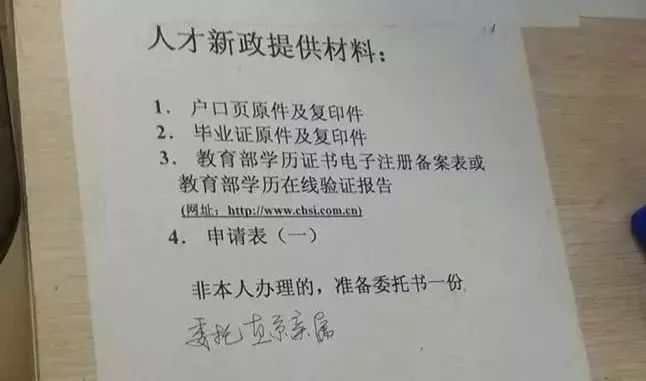 人才新政提供材料：
1. 户口页原件及复印件
2. 毕业证原件及复印件
3. 教育部学历证书电子注册备案表或
教育部学历在线验证报告
(网址：http://www.chsi.com.cn)
4. 申请表（一）
非本人办理的，准备委托书一份
委托直系亲属